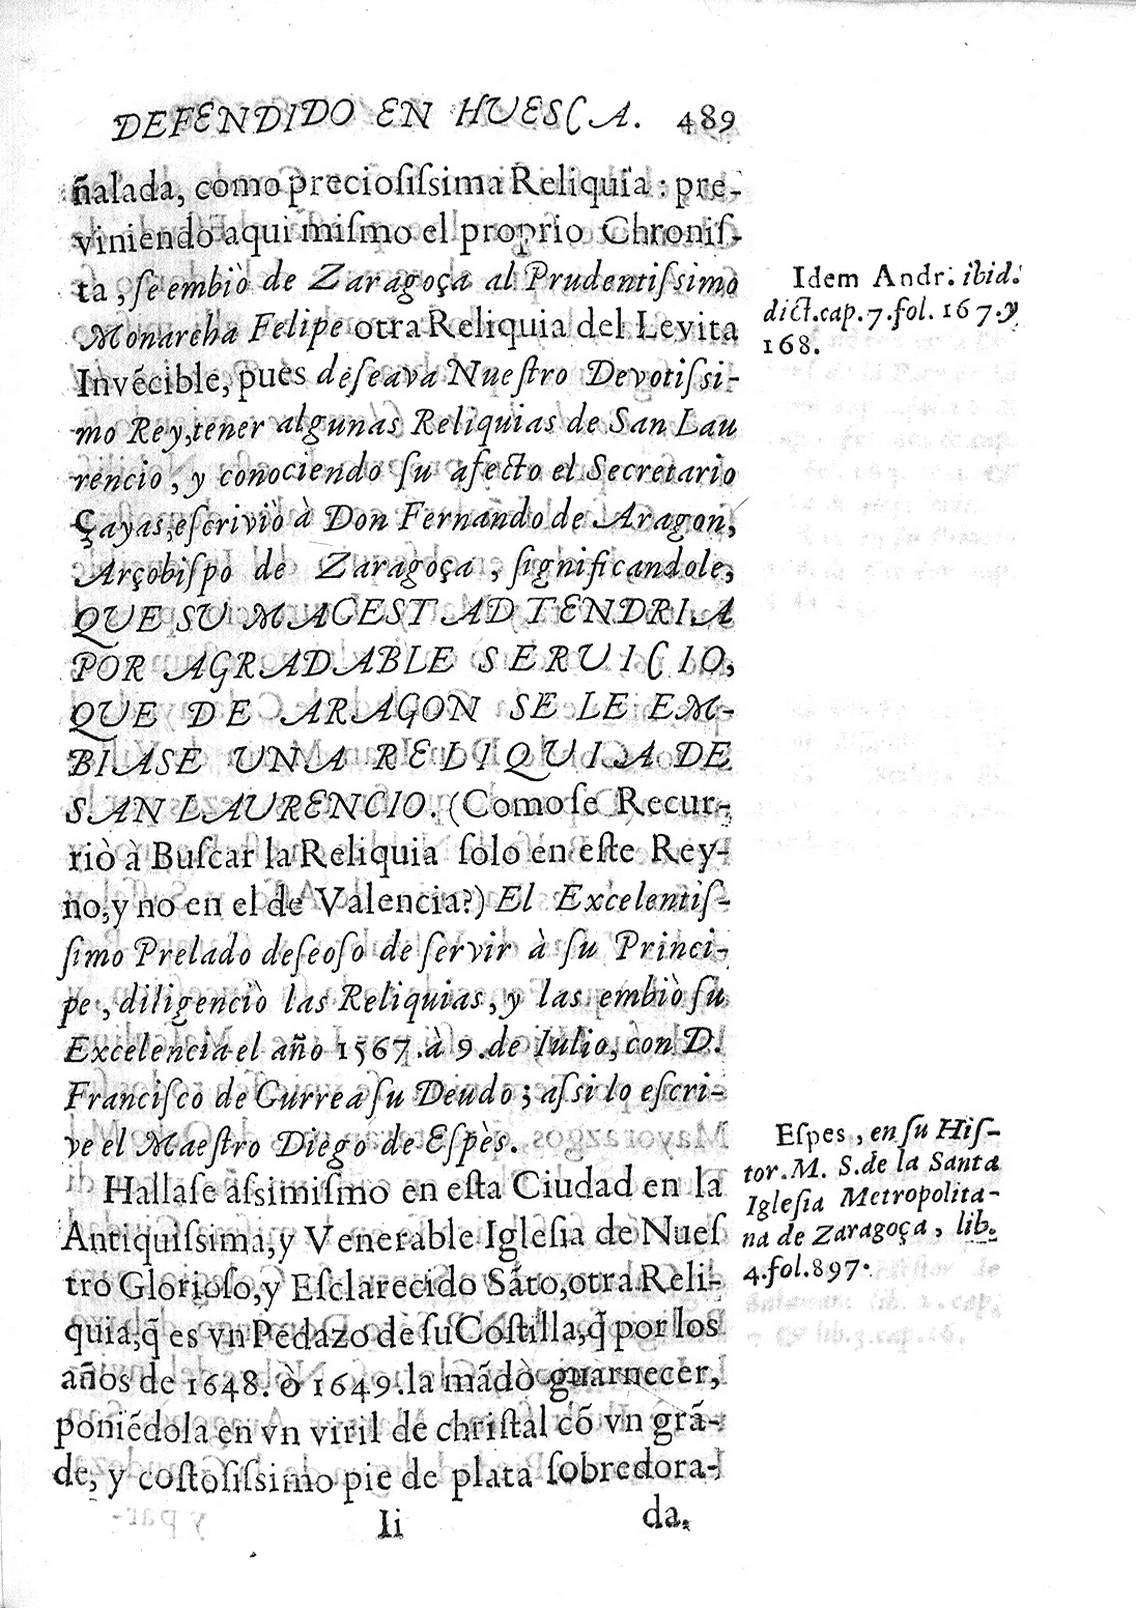 DEFENDIDO EN HUESCA. 489
ñalada, como preciosiſsima Reliquia : pre-
viniendo aqui miſmo el proprio Chroniſ-
ta, ſe embiò de Zaragoça al Prudentiſsimo
Monarcha Felipe otra Reliquia del Levita
Invécible, pues deſeava Nueſtro Devotiſsi-
mo Rey, tener algunas Reliquias de San Lau
rencio, y conociendo ſu afecto el Secretario
Çayas, eſcriviò à Don Fernando de Aragon,
Arçobiſpo de Zaragoça, ſignificandole,
QUE SU MAGESTAD TENDRIA
POR AGRADABLE SERUICIO,
QUE DE ARAGON SE LE EM-
BIASE UNA RELIQUIA DE
SAN LAURENCIO. (Como ſe Recur-
riò à Buſcar la Reliquia ſolo en eſte Rey-
no, y no en el de Valencia?) El Excelentiſ-
ſimo Prelado deſeoſo de ſervir à ſu Princi-
pe, diligenciò las Reliquias, y las embiò ſu
Excelencia el año 1567. à 9. de Iulio, con D.
Franciſco de Gurrea ſu Deudo; aſsi lo eſcri-
ve el Maeſtro Diego de Eſpès.
Hallaſe aſsimiſmo en eſta Ciudad en la
Antiquiſsima, y Venerable Igleſia de Nueſ
tro Glorioſo, y Eſclarecido Sãto, otra Reli-
quia, q̃ es vn Pedazo de ſu Coſtilla, q̃ por los
años de 1648. ò 1649. la mãdò guarnecer,
poniédola en vn viril de chriſtal cõ vn grã-
de, y coſtoſiſsimo pie de plata ſobredora-
Ii da,
Idem Andr. ibid.
dict. cap. 7. fol. 167. y
168.
Eſpes, en ſu Hiſ-
tor. M. S. de la Santa
Igleſia Metropolita-
na de Zaragoça, lib.
4. fol. 897.